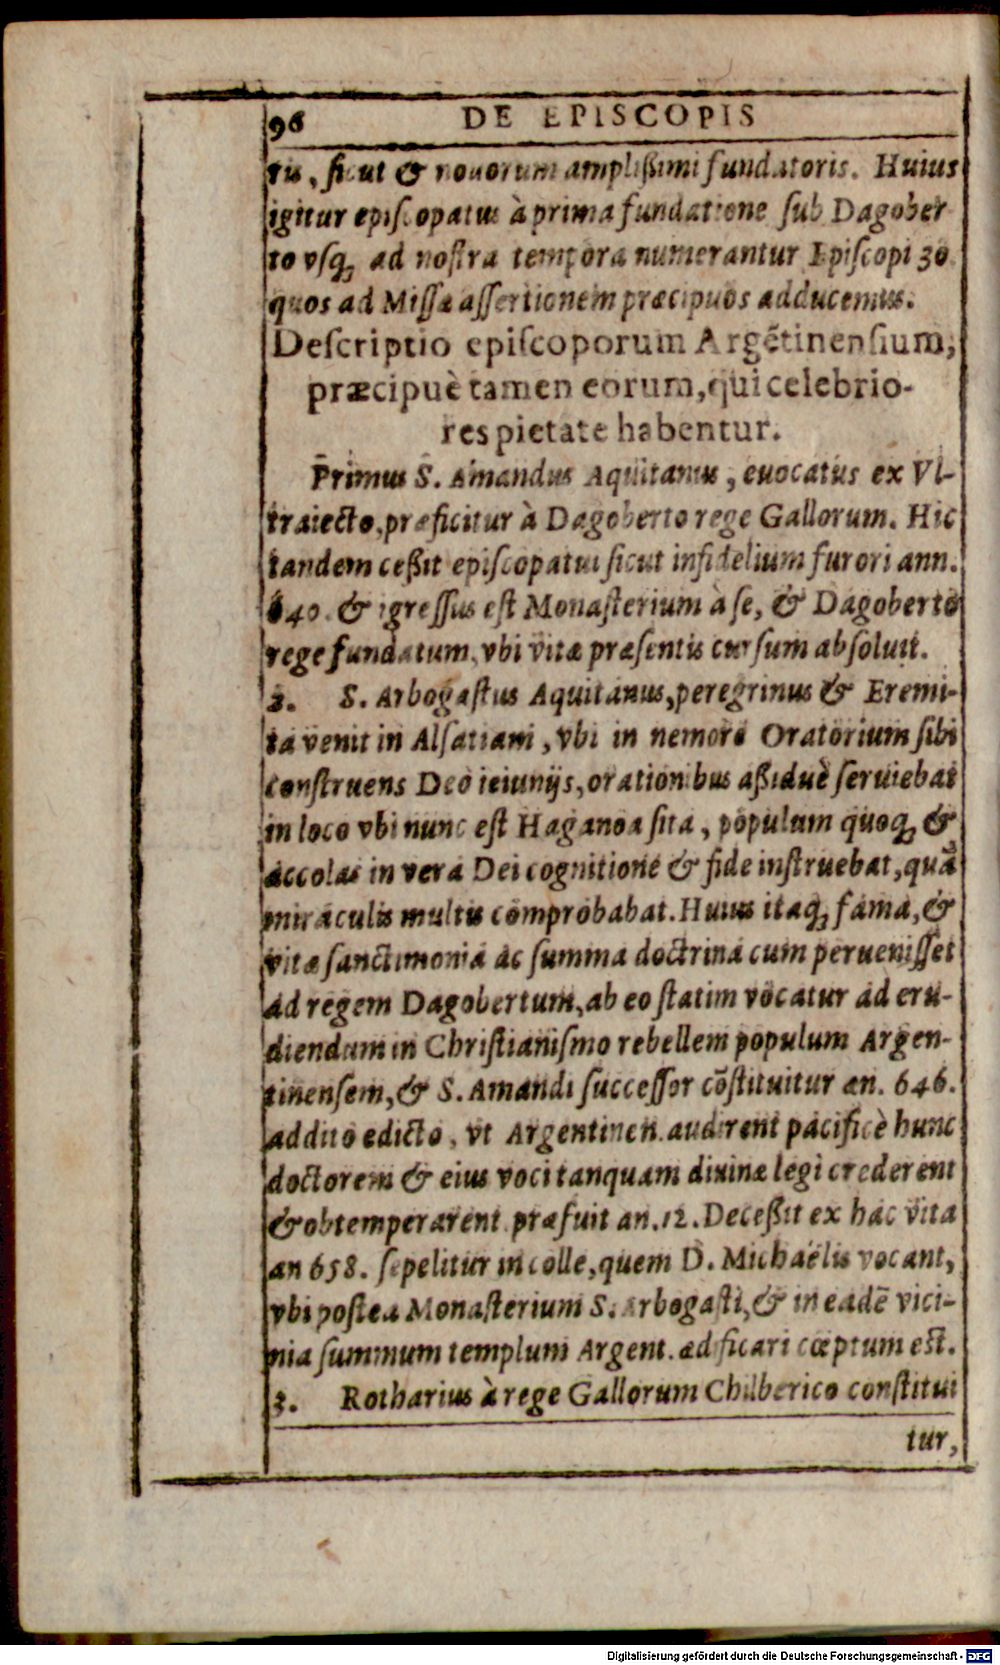 96 DE EPISCOPIS
tis, sicut & nouorum amplißimi fundatoris. Huius
igitur episcopatus à prima fundatione sub Dagober
to vsq; ad nostra tempora numerantur Episcopi 30
quos ad Missæ assertionem præcipuos adducemus.
Descriptio episcoporum Argẽtinensium,
præcipuè tamen eorum, qui celebrio-
res pietate habentur.
Primus S. Amandus Aquitanus, euocatus ex Vl-
traiecto, præficitur à Dagoberto rege Gallorum. Hic
tandem ceßit episcopatui sicut infidelium furori ann.
640. & igressus est Monasterium à se, & Dagoberto
rege fundatum, vbi vitæ præsentis cursum absoluit.
2. S. Arbogastus Aquitanus, peregrinus & Eremi-
ta venit in Alsatiam, vbi in nemore Oratorium sibi
construens Deo ieiunijs, orationibus aßiduè seruiebat
in loco vbi nunc est Haganoa sita, populum quoq; &
accolas in vera Dei cognitione & fide instruebat, quã
miraculis multis comprobabat. Huius itaq; fama, &
vitæ sanctimonia ac summa doctrina cum peruenisset
ad regem Dagobertum, ab eo statim vocatur ad eru-
diendum in Christianismo rebellem populum Argen-
tinensem, & S. Amandi successor cõstituitur an. 646.
addito edicto, vt Argentinen. audirent pacificè hunc
doctorem & eius voci tanquam diuinæ legi crederent
& obtemperarent præfuit an. 12. Deceßit ex hac vita
an 658. sepelitur in colle, quem D. Michaëlis vocant,
vbi postea Monasterium S. Arbogasti, & in eadẽ vici-
nia summum templum Argent. ædificari cœptum est.
3. Rotharius à rege Gallorum Chilberico constitui
tur,
Digitalisierung gefördert durch die Deutsche Forschungsgemeinschaft - DFG